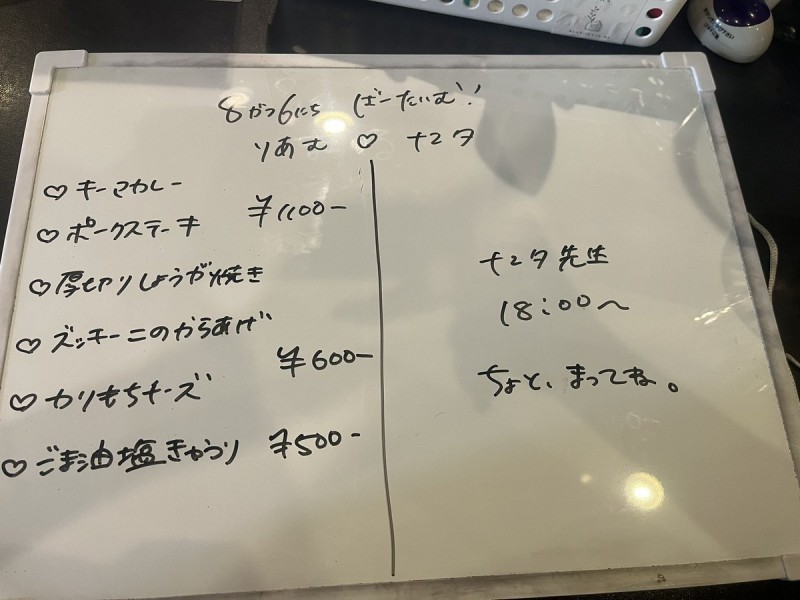 8がつ6にち ばーたいむ!!
りあむ ♡ ナユタ
♡ キーマカレー
♡ ポークステーキ ¥1100-
♡ 厚切りしょうが焼き
♡ ズッキーニのからあげ
¥600-
♡ カリもちチーズ
♡ ごま油塩きゅうり ¥500-
ナユタ先生
18:00〜
ちょと、まってね。